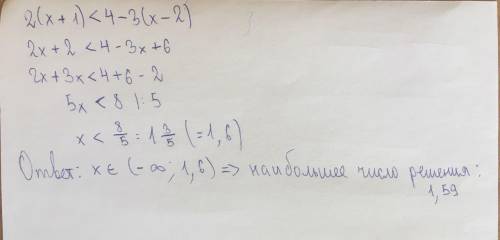 2(x+1)<4-3(x-2)
2x+2<4-3x+6
2x+3x<4+6-2
5x<8 |:5
x<8/5=1 3/5 (=1,6)
Ответ: x∈(-∞; 1,6) => наибольшее число решения:
1,59